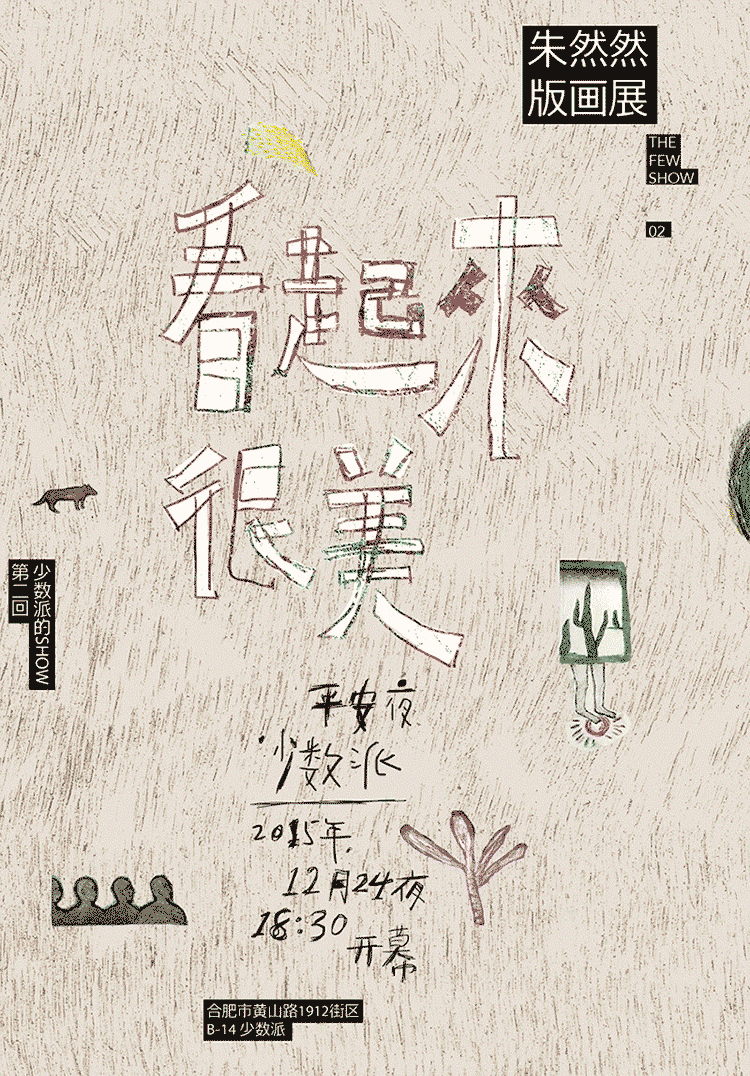 朱然然
版画展
THE
FEW
SHOW
02
看起來
很美
少数派的SHOW
第二回
平安夜
少数派
2015年.
12月24夜
18:30
开幕
合肥市黄山路1912街区
B-14 少数派